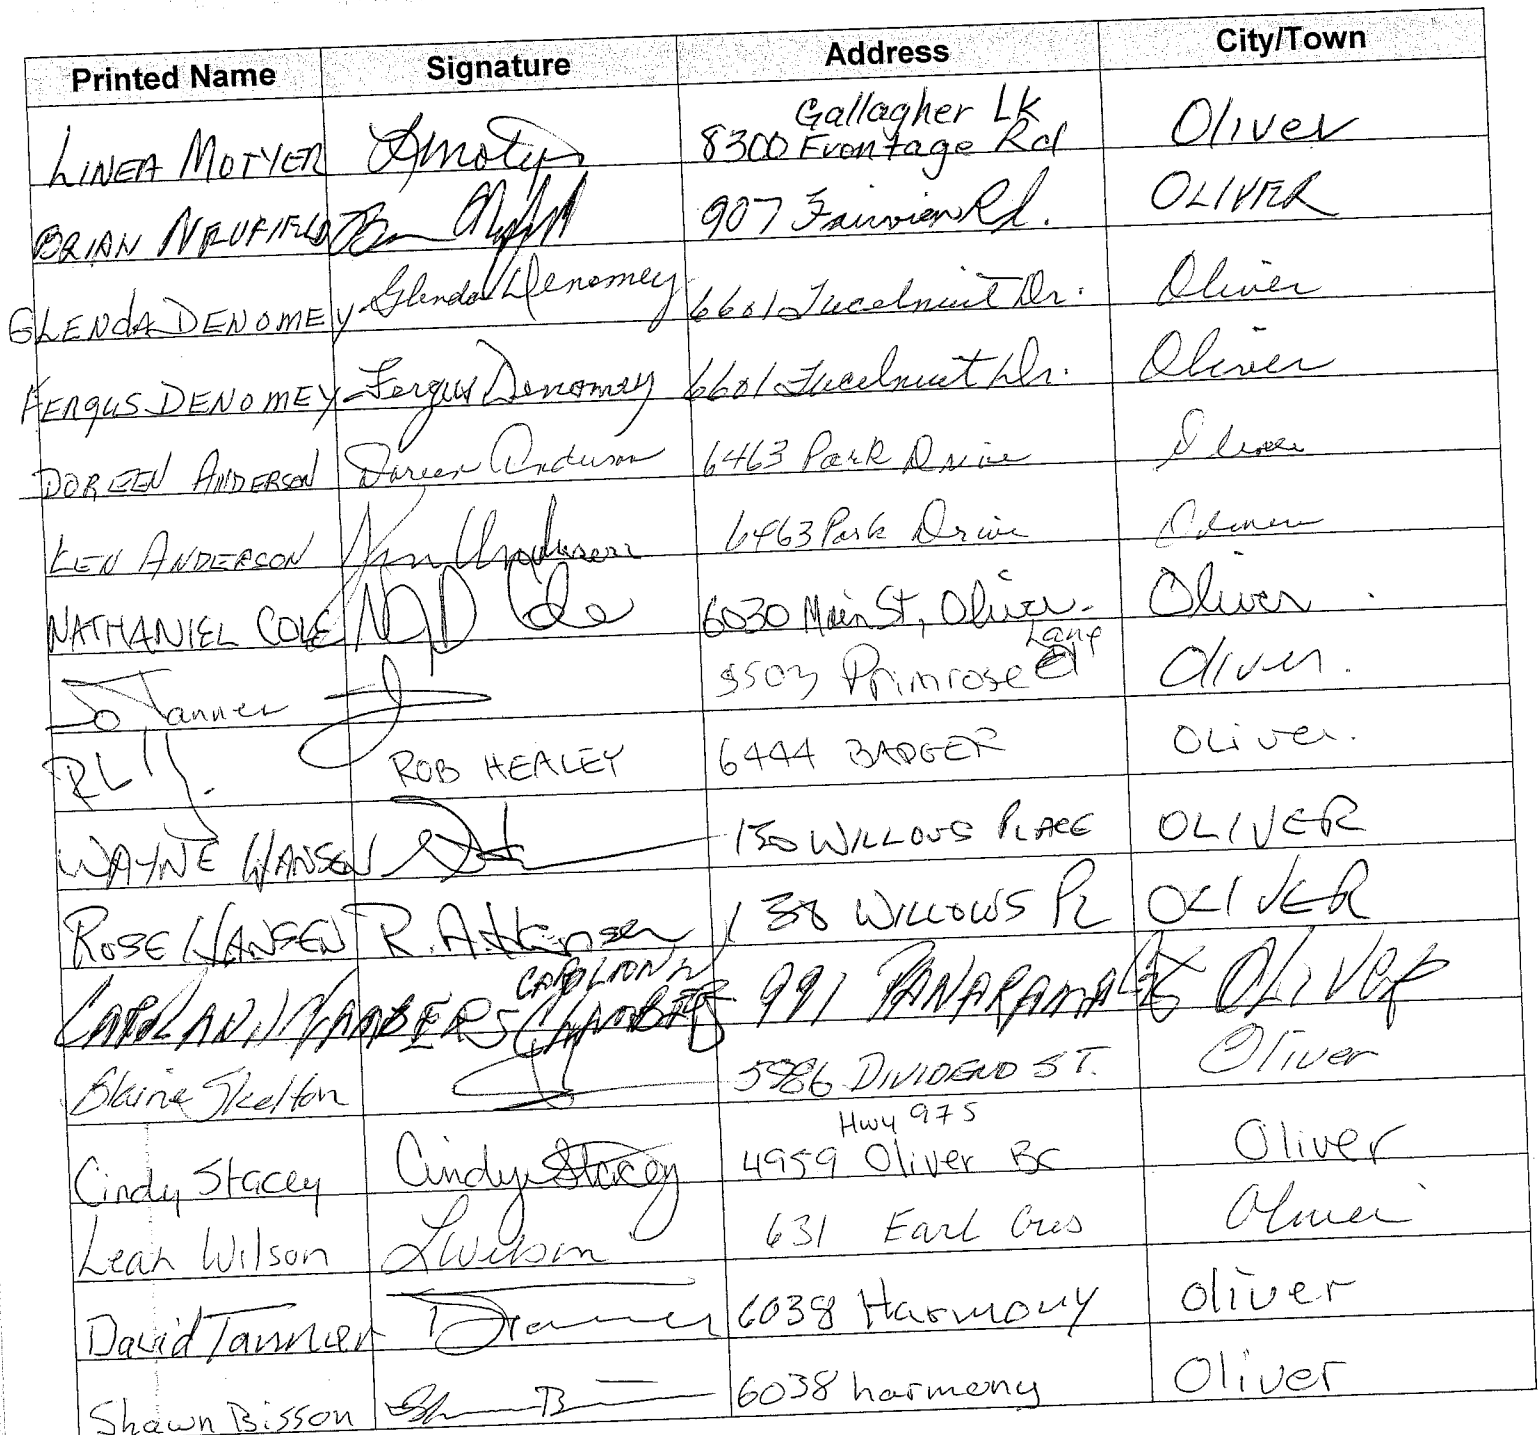 Printed Name Signature Address City/Town
Gallagher Lk
LINEA MOTYER 8300 Frontage Rd Oliver
BRIAN NEUFIELD 907 Fairview Rd. OLIVER
GLENDA DENOMEY Glenda Denomey 6601 Tucelnuit Dr. Oliver
FERGUS DENOMEY Fergus Denomey 6601 Tucelnuit Dr. Oliver
DOREEN ANDERSON Doreen Anderson 6463 Park Drive Oliver
KEN ANDERSON Ken Anderson 6463 Park Drive Oliver
NATHANIEL COLE ND Cole 6030 Main St, Oliver. Oliver
Lane
Jo Tanner Primrose Oliver.
ROB HEALEY 6444 BADGER Oliver.
WAYNE HANSEN WILLOWS PLACE OLIVER
ROSE HANSEN 138 WILLOWS PL OLIVER
CAROLANN
CAROLANN CHAMBERS CHAMBERS 991 PANARAMA OLIVER
Blaine Skelton 5986 DIVIDEND ST. Oliver
Hwy 97S
Cindy Stacey Cindy Stacey 4959 Oliver BC Oliver
Leah Wilson LWilson 631 Earl Cres Oliver
David Tanner DTanner 6038 Harmony Oliver
Shawn Bisson 6038 harmony Oliver